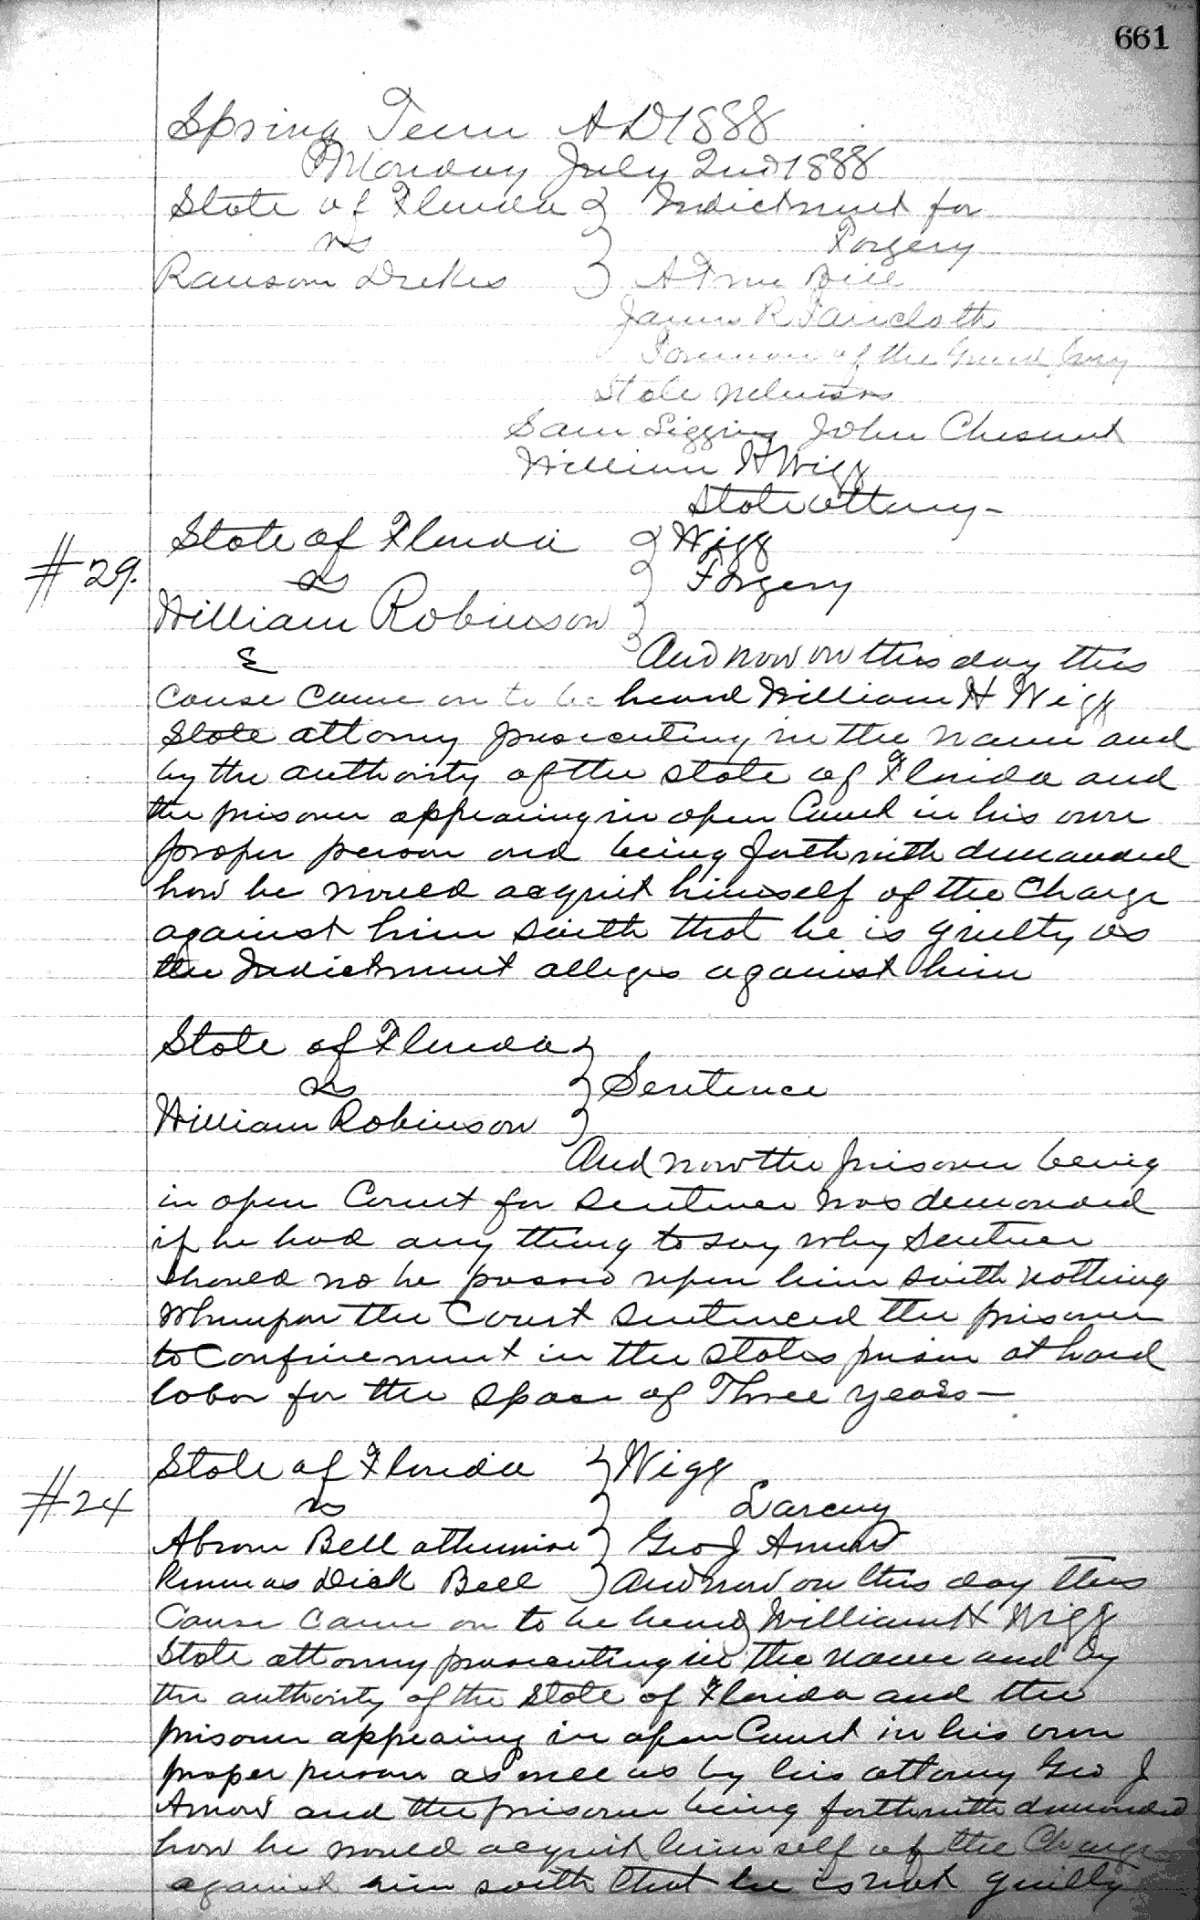 661
Spring Term AD 1888
Monday July 2nd 1888
State of Florida } Indictment for
vs } Forgery
Ransom Dukes } A True Bill
James R Faircloth
Foreman of the Grand Jury
State Witnesses
Sam Liggins John Chesnut
William H Wigg
State attorney -
State of Florida } Wigg
#29. vs } Forgery
William Robinson }
& And now on this day this
cause came on to be heard William H Wigg
State attorny prosecuting in the name and
by the authority of the state of Florida and
the prisoner appearing in open Court in his own
proper person and being forthwith demanded
how he would acquit himself of the Charge
against him saith that he is guilty as
the Indictment alleges against him
State of Florida }
vs } Sentence
William Robinson }
And now the prisoner being
in open Court for sentence was demanded
if he had any thing to say why sentence
should no be passed upon him saith nothing
Whereupon the Court sentenced the prisoner
to confinement in the states prison at hard
labor for the space of Three years —
State of Florida } Wigg
#24 vs } Larceny
Abrom Bell otherwise } Geo J Arnow
known as Dick Bell } And now on this day this
Cause came on to be heard William H Wigg
State attorny prosecuting in the name and by
the authority of the State of Florida and the
prisoner appearing in open Court in his own
proper person as well as by his attorny Geo J
Arnow and the prisoner being forthwith demanded
how he would acquit himself of the Charge
against him saith that he is not guilty